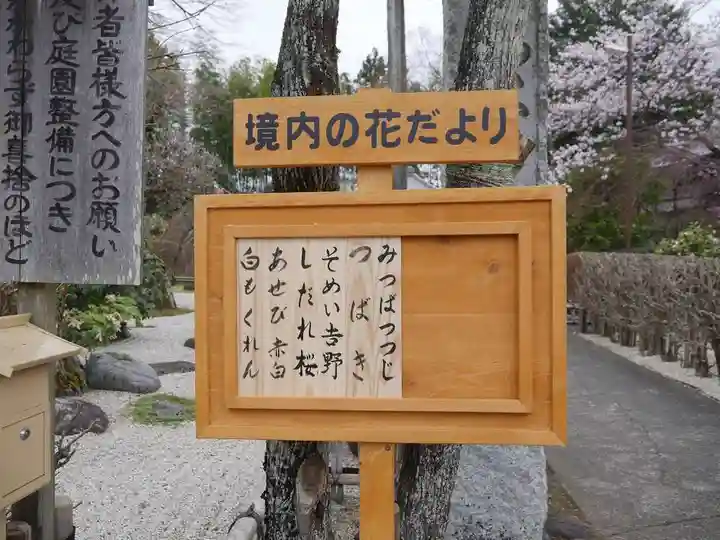 境内の花だより
みつばつつじ
つばき
そめい吉野
しだれ桜
あせび 赤白
白もくれん
者皆様方へのお願い
び庭園整備につき
かわらず御喜捨のほど